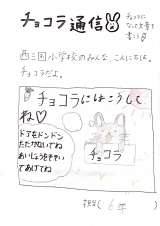 チョコラ通信
チョコに
なって文章を
書こう
西三国小学校のみんな、こんにちは。
チョコラだよ。
チョコラにはこうして
ね♡
ドアをドンドン
たたかないでね
あいしょうをきそい
であげてね
チョコラ
6年